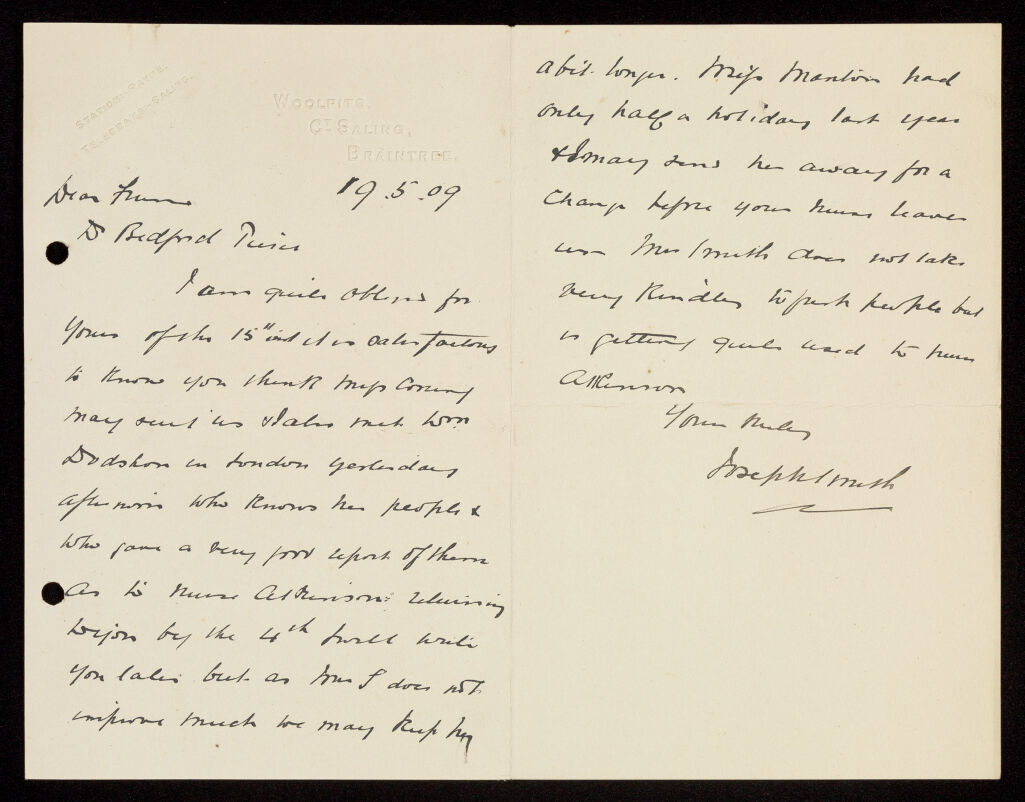 STATION:- RAYNE.
TELEGRAMS:- SALING.
WOOLPITS,
GT SALING,
BRAINTREE.
19.5.09
Dear Friend
Dr Bedford Pierce
I am quite obliged for
yours of the 15th inst it is satisfactory
to know you think Miss
may suit us & I also met
Dodshon in London yesterday
afternoon who knows her people &
who gave a very good report of them
As to Nurse Atkinson returning
to you by the 4th I will write
you later but as Mrs S does not
improve much we may keep her
a bit longer. Miss Manton had
only half a holiday last year
& I may send her away for a
change before your nurse leaves
us. Mrs Smith does not take
very kindly to fresh people but
is getting quite used to Nurse
Atkinson
Yours truly
Joseph Smith